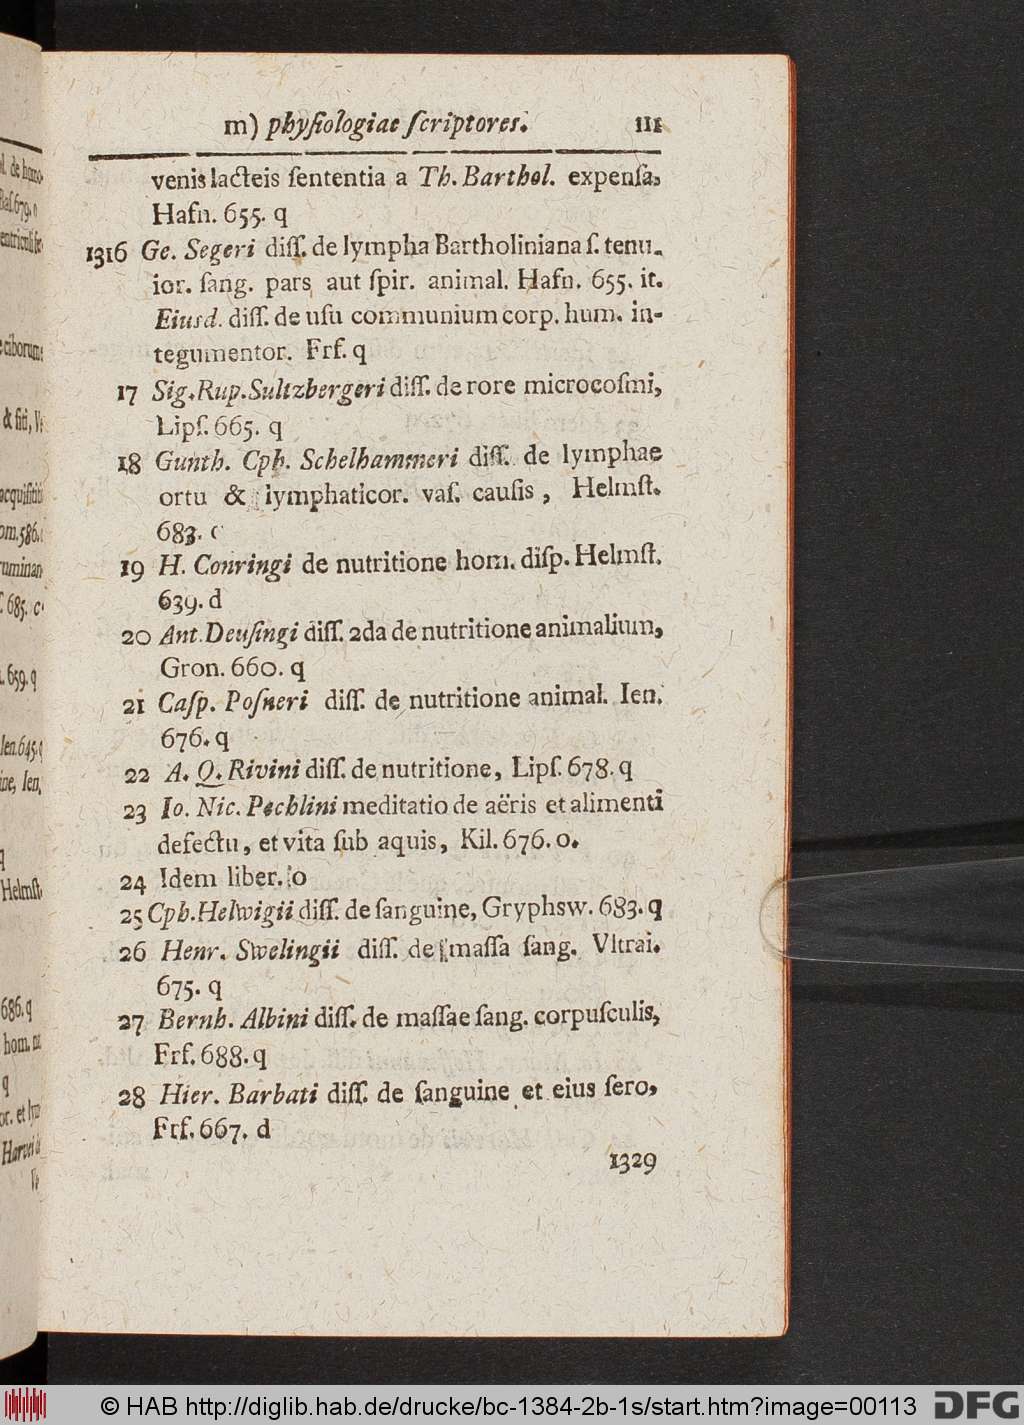 m) phyſiologiae ſcriptores. 111
venis lacteis ſententia a Th. Barthol. expenſa,
Hafn. 655. q
1316 Ge. Segeri diſſ. de lympha Bartholiniana ſ. tenu-
ior. ſang. pars aut ſpir. animal. Hafn. 655. it.
Eiusd. diſſ. de uſu communium corp. hum. in-
tegumentor. Frf. q
17 Sig. Rup. Sultzbergeri diſſ. de rore microcoſmi,
Lipſ. 665. q
18 Gunth. Cph. Schelhammeri diſſ. de lymphae
ortu & lymphaticor. vaſ. cauſis, Helmſt.
683. c
19 H. Conringi de nutritione hom. diſp. Helmſt.
639. d
20 Ant. Deuſingi diſſ. 2da de nutritione animalium,
Gron. 660. q
21 Caſp. Poſneri diſſ. de nutritione animal. Ien.
676. q
22 A. Q. Rivini diſſ. de nutritione, Lipſ. 678. q
23 Io. Nic. Pechlini meditatio de aëris et alimenti
defectu, et vita ſub aquis, Kil. 676. o.
24 Idem liber. o
25 Cph. Helwigii diſſ. de ſanguine, Gryphsw. 683. q
26 Henr. Swelingii diſſ. de maſſa ſang. Vltrai.
675. q
27 Bernh. Albini diſſ. de maſſae ſang. corpuſculis,
Frf. 688. q
28 Hier. Barbati diſſ. de ſanguine et eius ſero,
Frf. 667. d
1329
© HAB http://diglib.hab.de/drucke/bc-1384-2b-1s/start.htm?image=00113 DFG